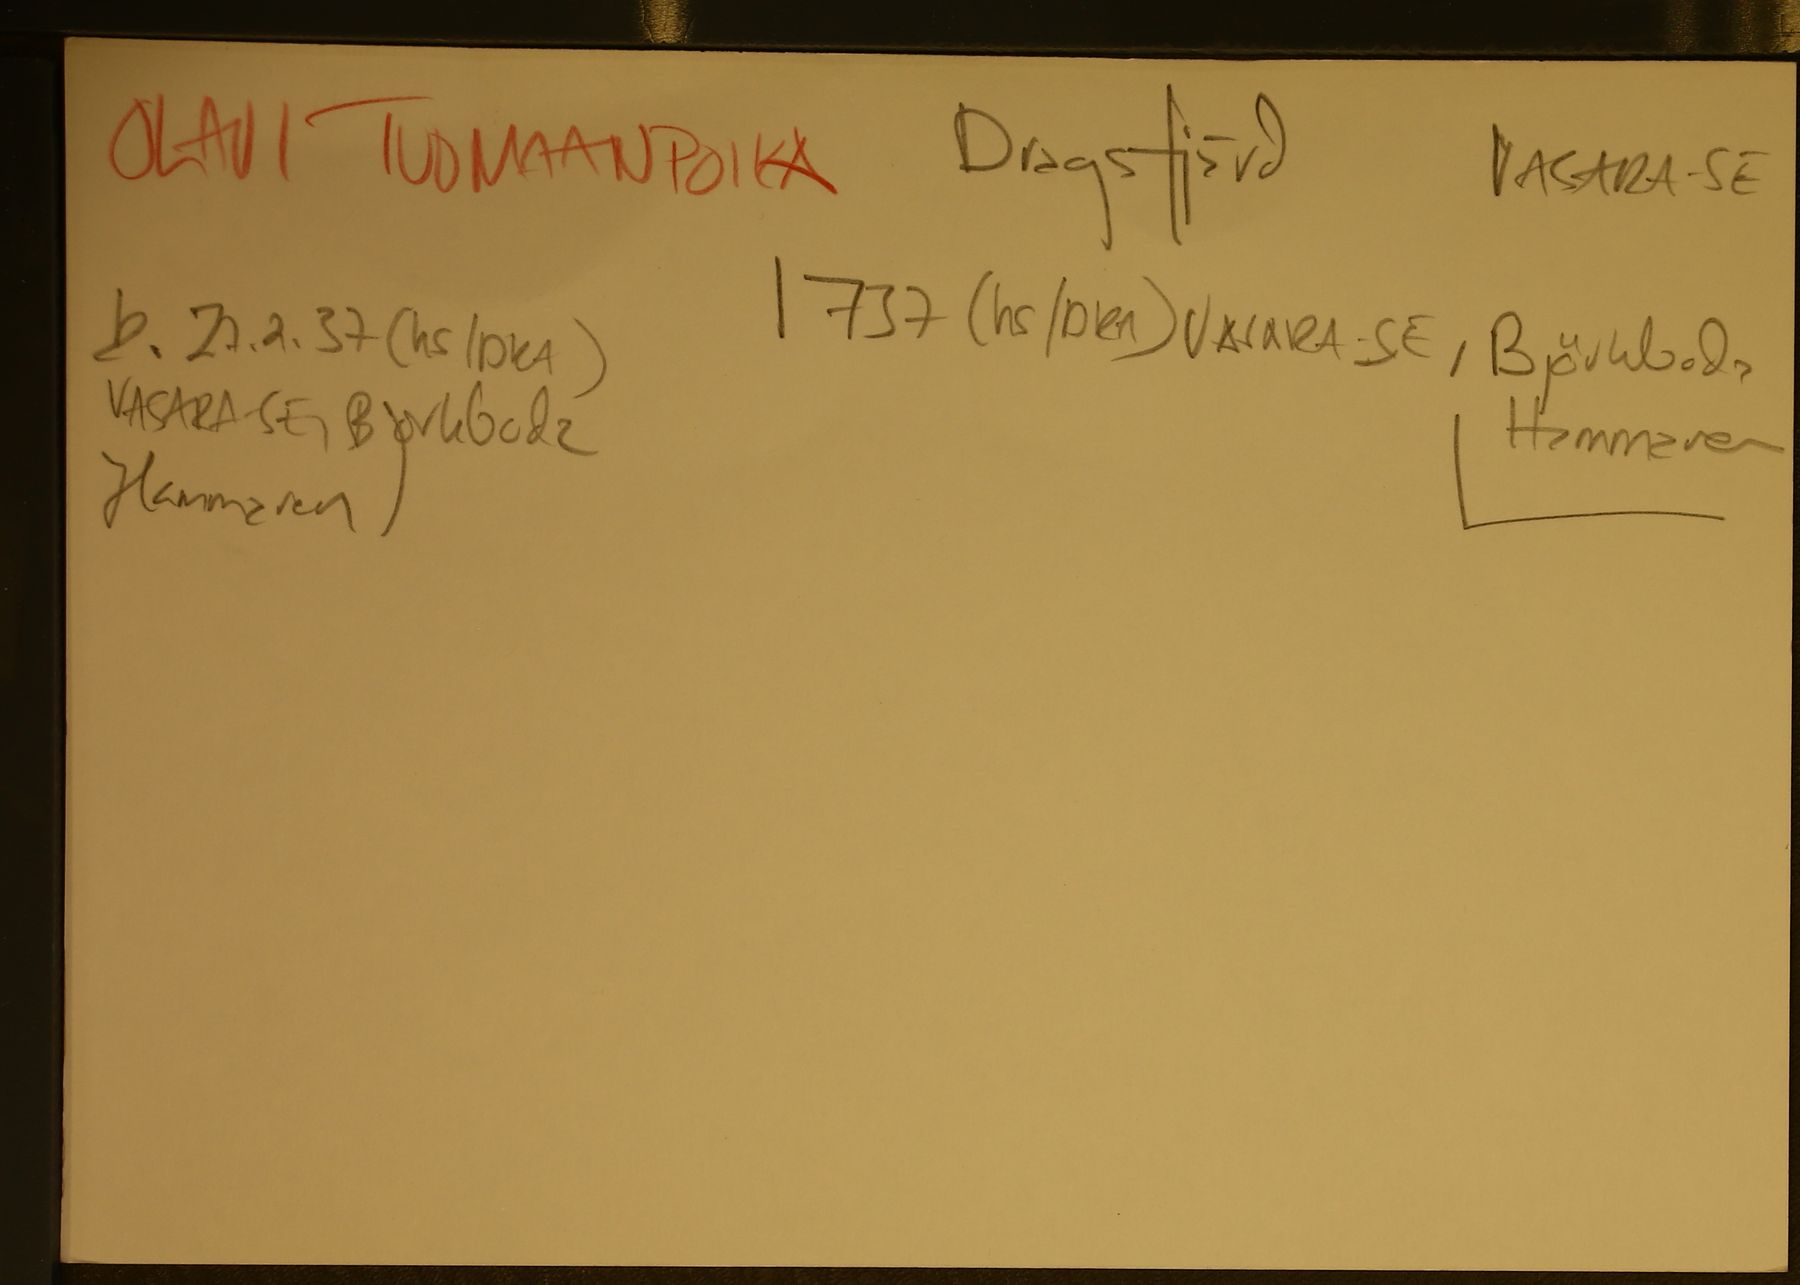 OLAVI TUOMAANPOIKA Dragsfjärd VASARA-SE
1737 (hs/DKA) VASARA-SE, Björkboda
Hammaren
b. 27.2.37 (hs/DKA)
VASARA-SE, Björkboda
Hammaren